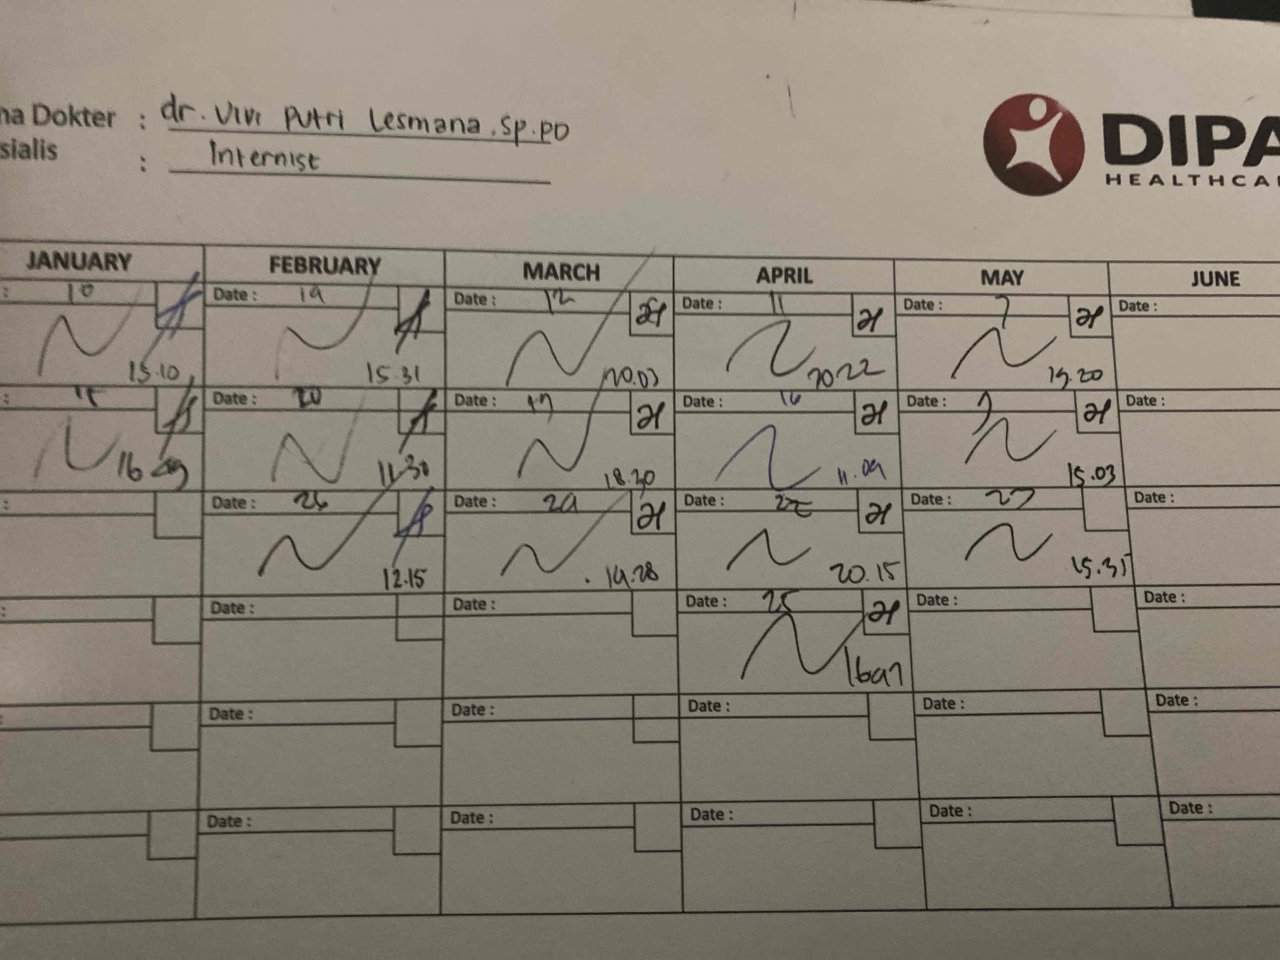 na Dokter : dr. Vivi Putri Lesmana, Sp.PD
sialis : Internist
DIPA
HEALTHCA
JANUARY FEBRUARY MARCH APRIL MAY JUNE
: 10 Date : 19 Date : 12 Date : 11 Date : 7 Date :
15.10 15.31 20.03 20.22 19.20
: Date : 20 Date : 17 Date : 16 Date : Date :
16 11.30 18.20 11.09 15.03
: Date : 26 Date : 29 Date : 22 Date : 27 Date :
12.15 19.28 20.15 15.35
: Date : Date : Date : 25 Date : Date :
: Date : Date : Date : Date : Date :
Date : Date : Date : Date : Date :